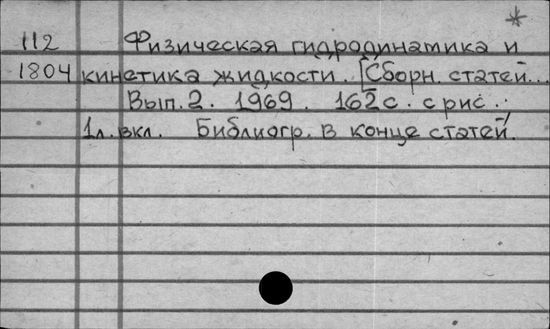 *
112 Физическая гидродинамика и
1804 кинетика жидкости. [Сборн. статей...
Вып. 2. 1969. 162 с. с рис.;
1 л. вкл. Библиогр. в конце статей.